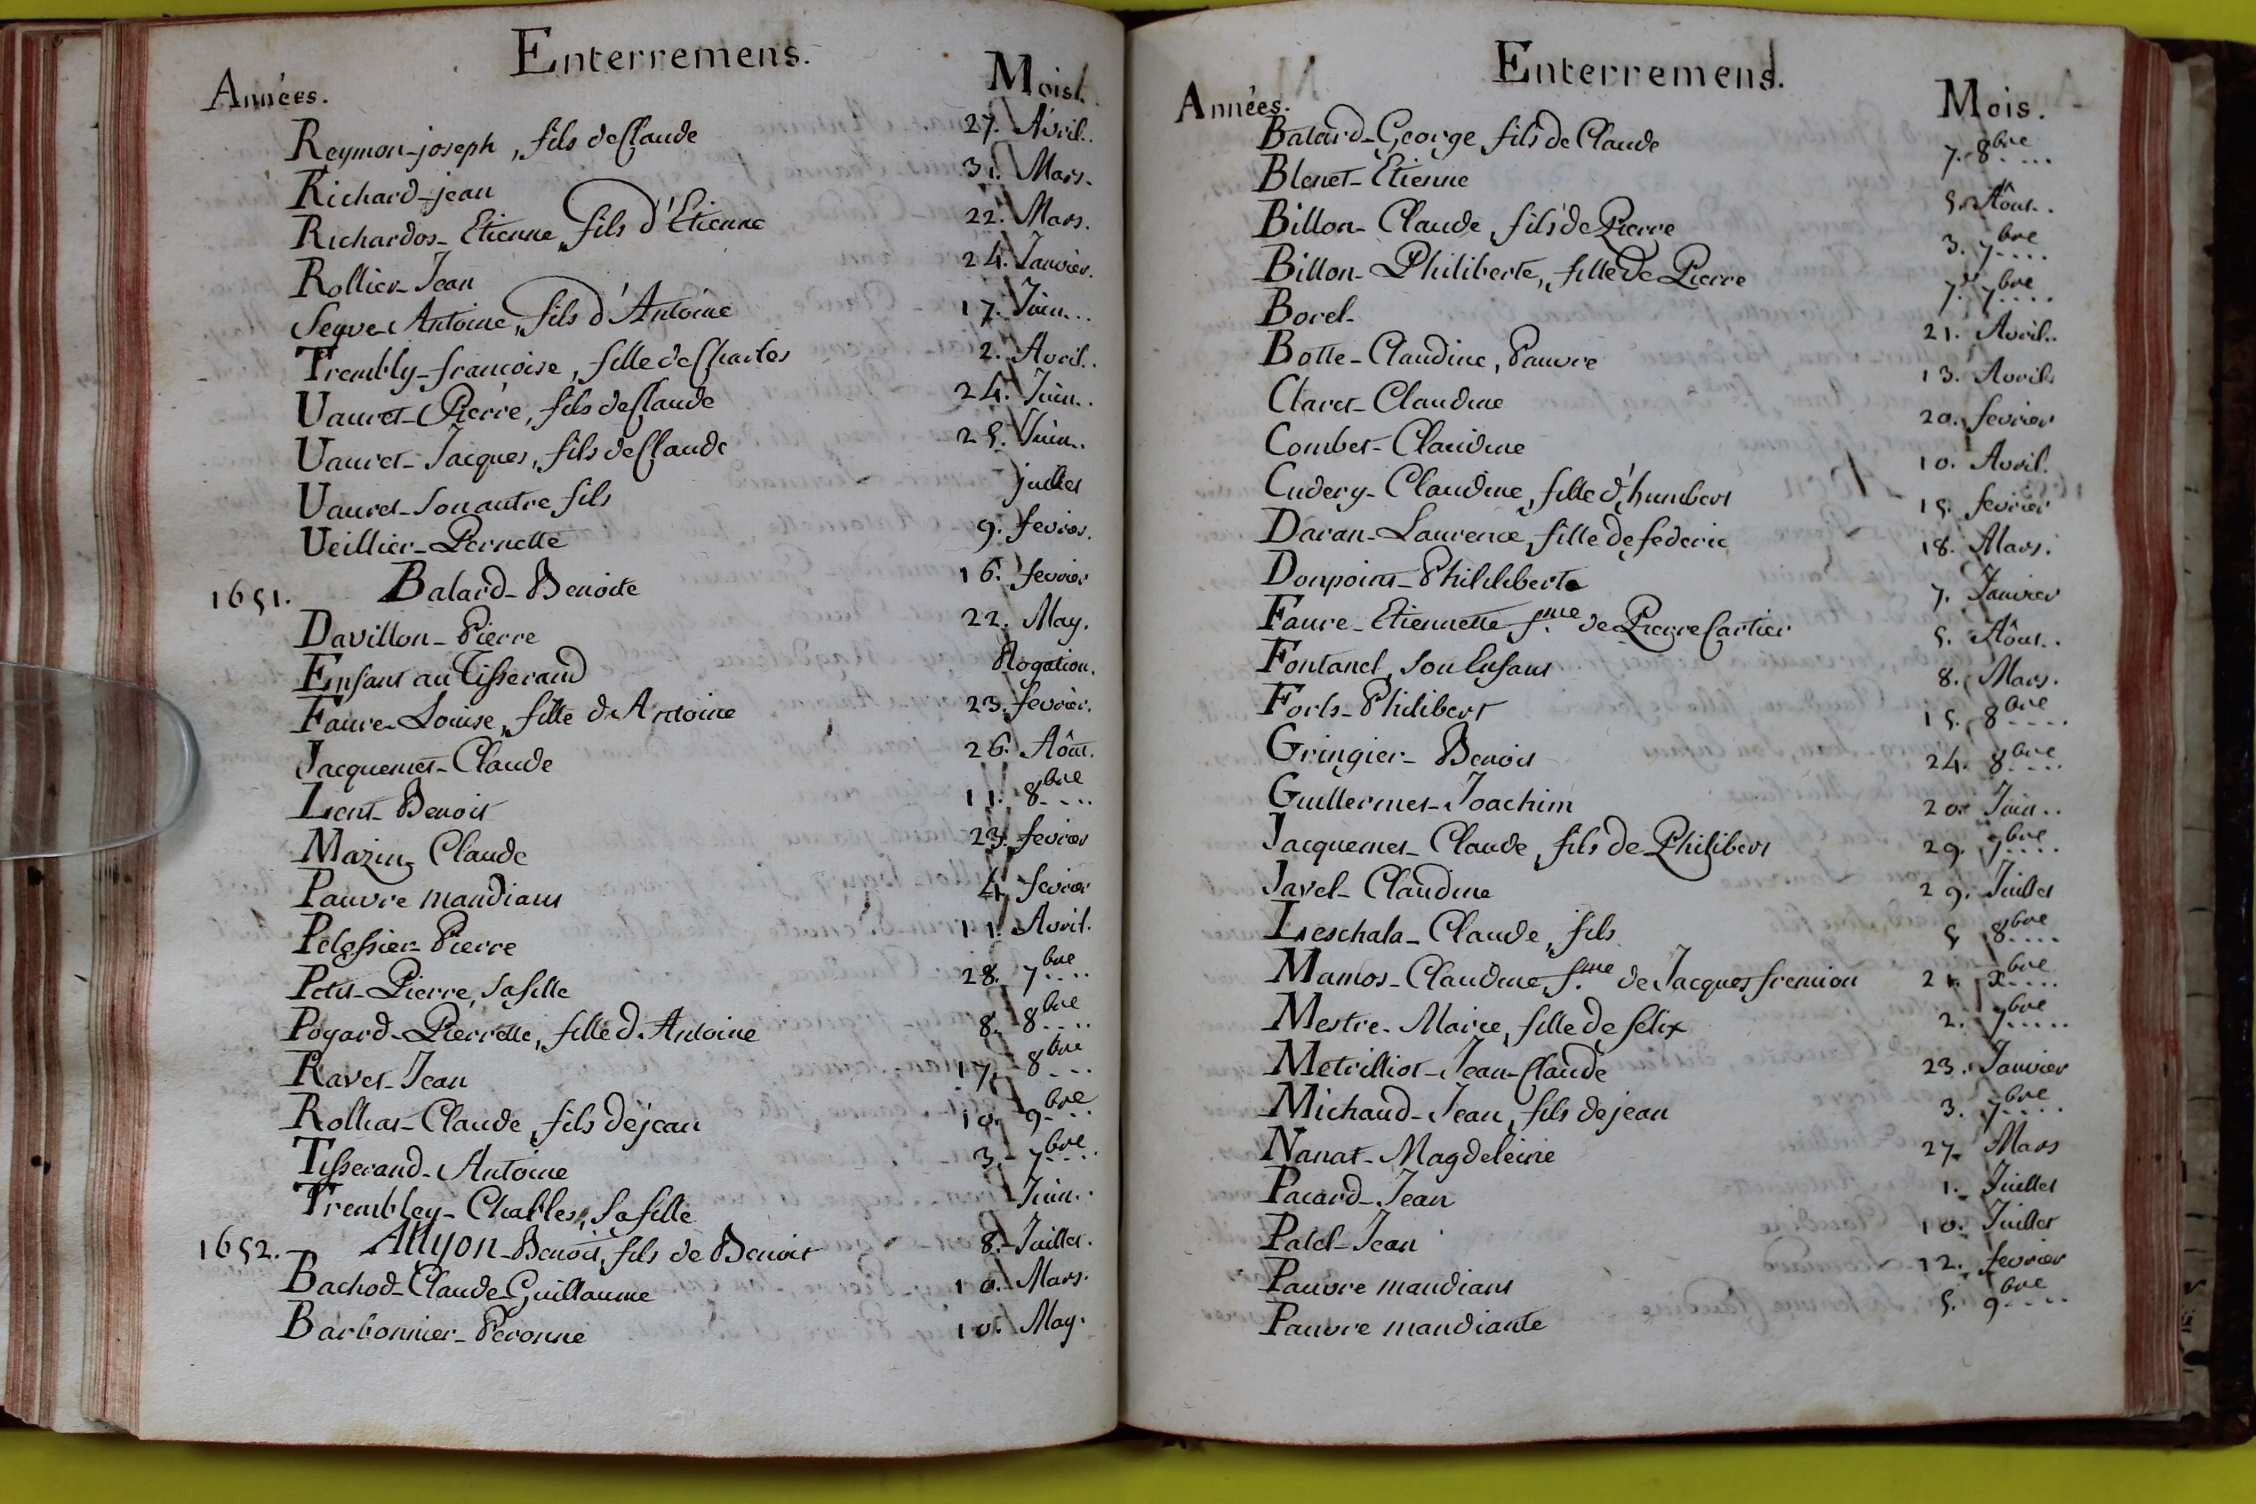 Enterremens.
Années. Mois.
Reymon-joseph, fils de Claude 27. Avril..
Richard-jean 31. Mars.
Richardos-Etienne, fils d'Etienne 22. Mars.
Rollier-Jean 24. Janvier.
Seyve-Antoine, fils d'Antoine 17. Juin...
Trembly-francoise, fille de Charles 2. Avril..
Vauret-Pierre, fils de Claude 24. Juin..
Vauret-Jacques, fils de Claude 25. Juin..
Vauret-son autre fils juillet
Veillier-Pernette 9. fevrier.
1651. Balard-Benoite 16. fevrier
Davillon-Pierre 22. May.
Enfant au Tisserand Rogation.
Faure-Louise, fille d'Antoine 23. fevrier.
Jacquemet-Claude 26. Aôut.
Lent-Benoit 11. 8bre....
Mazin, Claude 23. fevrier
Pauvre mandiant 4. fevrier
Pelossier-Pierre 11. Avril.
Petit-Pierre, sa fille 28. 7bre....
Poyard-Pierrette, fille d'Antoine 8. 8bre....
Ravet-Jean 17. 8bre...
Rolliat-Claude, fils de jean 10. 9bre...
Tisserand-Antoine 3. 7bre....
Trembley-Charles, sa fille Juin..
1652. Allyon-Benoit, fils de Benoit 8. Juillet.
Bachod-Claude-Guillaume 10. Mars.
Barbonnier-Peronne 10. May.
Enterremens.
Années. Mois.
Balard-George, fils de Claude 7. 8bre....
Blenet-Etienne 5. Aôut..
Billon-Claude, fils de Pierre 3. 7bre....
Billon-Philiberte, fille de Pierre 7. 7bre....
Borel- 21. Avril..
Botte-Claudine, Pauvre 13. Avril.
Claret-Claudine 20. fevrier
Combet-Claudine 10. Avril.
Cudery-Claudine, fille d'humbert 15. fevrier
Daran-Laurence, fille de federic 18. Mars.
Donpoint-Phililiberte 7. Janvier
Faure-Etiennette f.me de Pierre Cartier 5. Aôut..
Fontanel, son Enfant 8. Mars.
Forls-Philibert 15. 8bre....
Gringier-Benoit 24. 8bre....
Guillermet-Joachim 20. Juin..
Jacquemet-Claude, fils de Philibert 29. 7bre....
Javel-Claudine 29. Juillet
Leschala-Claude, fils 5 8bre....
Mamos-Claudine, f.me de Jacques fremion 21. Xbre....
Mestre-Marie, fille de felix 2. 7bre.....
Metrilliot-Jean-Claude 23. Janvier
Michaud-Jean, fils de jean 3. 7bre....
Nanat-Magdeleine 27. Mars
Pacard-Jean 1. Juillet
Palel-Jean 10. Juillet
Pauvre mandiant 12. fevrier
Pauvre mandiante 5. 9bre....